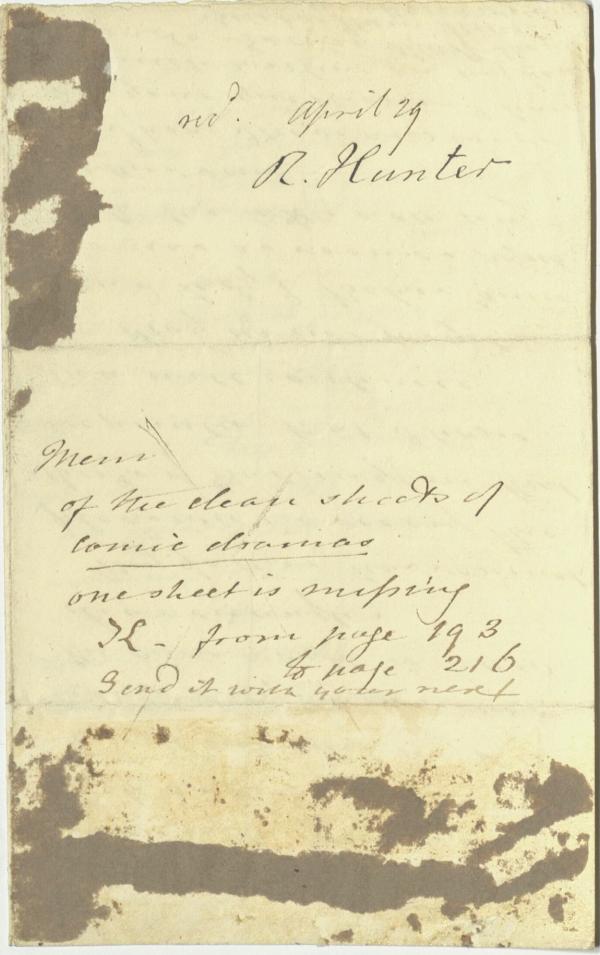 recd. April 29
R. Hunter
Mem
of the clean sheets of
comic dramas
one sheet is missing
K - from page 193
to page 216
Send it with your next